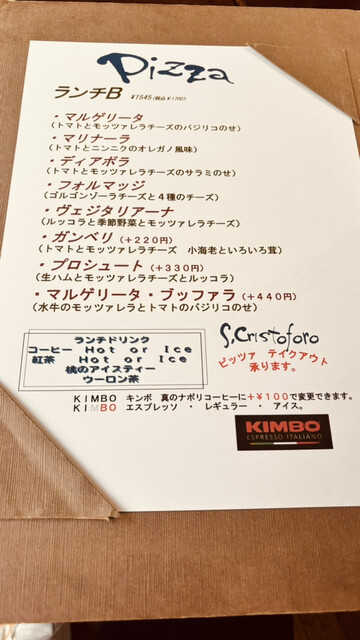 Pizza
ランチB ¥1545(税込¥1700)
・マルゲリータ
(トマトとモッツァレラチーズのバジリコのせ)
・マリナーラ
(トマトとニンニクのオレガノ風味)
・ディアボラ
(トマトとモッツァレラチーズのサラミのせ)
・フォルマッジ
(ゴルゴンゾーラチーズと４種のチーズ)
・ヴェジタリアーナ
(ルッコラと季節野菜とモッツァレラチーズ)
・ガンベリ(＋220円)
(トマトとモッツァレラチーズ　小海老といろいろ茸)
・プロシュート(＋330円)
(生ハムとモッツァレラチーズとルッコラ)
・マルゲリータ・ブッファラ(＋440円)
(水牛のモッツァレラとトマトのバジリコのせ)
ランチドリンク
コーヒー Hot or Ice
紅茶 Hot or Ice
桃のアイスティー
ウーロン茶
S.Cristoforo
ピッツァ テイクアウト
承ります。
KIMBO キンボ 真のナポリコーヒーに＋¥100で変更できます。
KIMBO エスプレッソ ・ レギュラー ・ アイス。
KIMBO
ESPRESSO ITALIANO